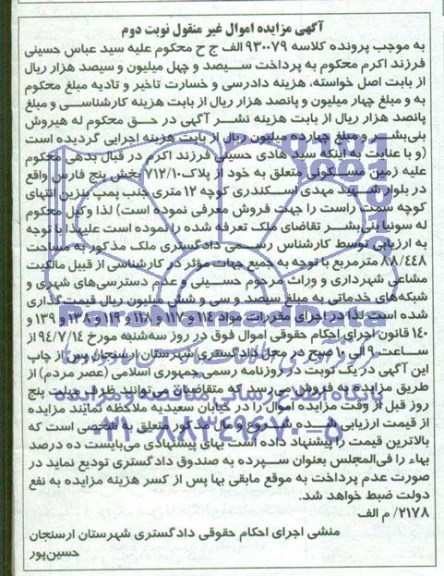 آگهی مزایده اموال غیر منقول نوبت دوم
به موجب پرونده کلاسه ۹۳۰۰۷۹ الف ج ح محکوم علیه سید عباس حسینی
فرزند اکرم محکوم به پرداخت سیصد و چهل میلیون و سیصد هزار ریال
از بابت اصل خواسته، هزینه دادرسی و خسارت تاخیر و تادیه مبلغ محکوم
به و مبلغ چهار میلیون و پانصد هزار ریال از بابت هزینه کارشناسی و مبلغ
پانصد هزار ریال از بابت هزینه نشر آگهی در حق محکوم له هیروش
بنی‌بشر و مبلغ چهارده میلیون ریال از بابت هزینه اجرایی گردیده است
(و با عنایت به اینکه سید هادی حسینی فرزند اکرم در قبال بدهی محکوم
علیه زمین مسکونی متعلق به خود از پلاک ۷۱۲/۱۰ بخش پنج فارس واقع
در بلوار شهید مهدی اسکندری کوچه ۱۲ متری جنب پمپ بنزین انتهای
کوچه سمت راست را جهت فروش معرفی نموده است) لذا وکیل محکوم
له سونیا بنی‌بشر تقاضای ملک تعرفه شده را نموده است علیهذا با توجه
به ارزیابی توسط کارشناس رسمی دادگستری ملک مذکور به مساحت
۸۸/۴۴۸ مترمربع با توجه به جمیع جهات مؤثر در کارشناسی از قبیل مالکیت
مشاعی شهرداری و وراث مرحوم حسینی و عدم دسترسی‌های شهری و
شبکه‌های خدماتی به مبلغ سیصد و سی و شش میلیون ریال قیمت‌گذاری
شده است لذا در اجرای مقررات مواد ۱۱۴ و ۱۱۷ و ۱۱۸ و ۱۱۹ و ۱۳۸ و ۱۳۹ و
۱۴۰ قانون اجرای احکام حقوقی اموال فوق در روز سه‌شنبه مورخ ۹۴/۷/۱۴ از
ساعت ۹ الی ۱۰ صبح در محل دادگستری شهرستان ارسنجان پس از چاپ
این آگهی در یک نوبت در روزنامه رسمی جمهوری اسلامی (عصر مردم) از
طریق مزایده به فروش می‌رسد که متقاضیان می‌توانند ظرف مهلت پنج
روز قبل از وقت مزایده اموال را در خیابان سعیدیه ملاحظه نمایند مزایده
از قیمت ارزیابی شده شروع و مال مذکور متعلق به شخصی است که
بالاترین قیمت را پیشنهاد داده است بهای پیشنهادی می‌بایست ده درصد
بهاء را فی‌المجلس بعنوان سپرده به صندوق دادگستری تودیع نماید در
صورت عدم پرداخت به موقع مابقی بها پس از کسر هزینه مزایده به نفع
دولت ضبط خواهد شد.
۲۱۷۸/ م الف
منشی اجرای احکام حقوقی دادگستری شهرستان ارسنجان
حسین‌پور
ParsNamadData
پایگاه اطلاع رسانی مناقصه و مزایده